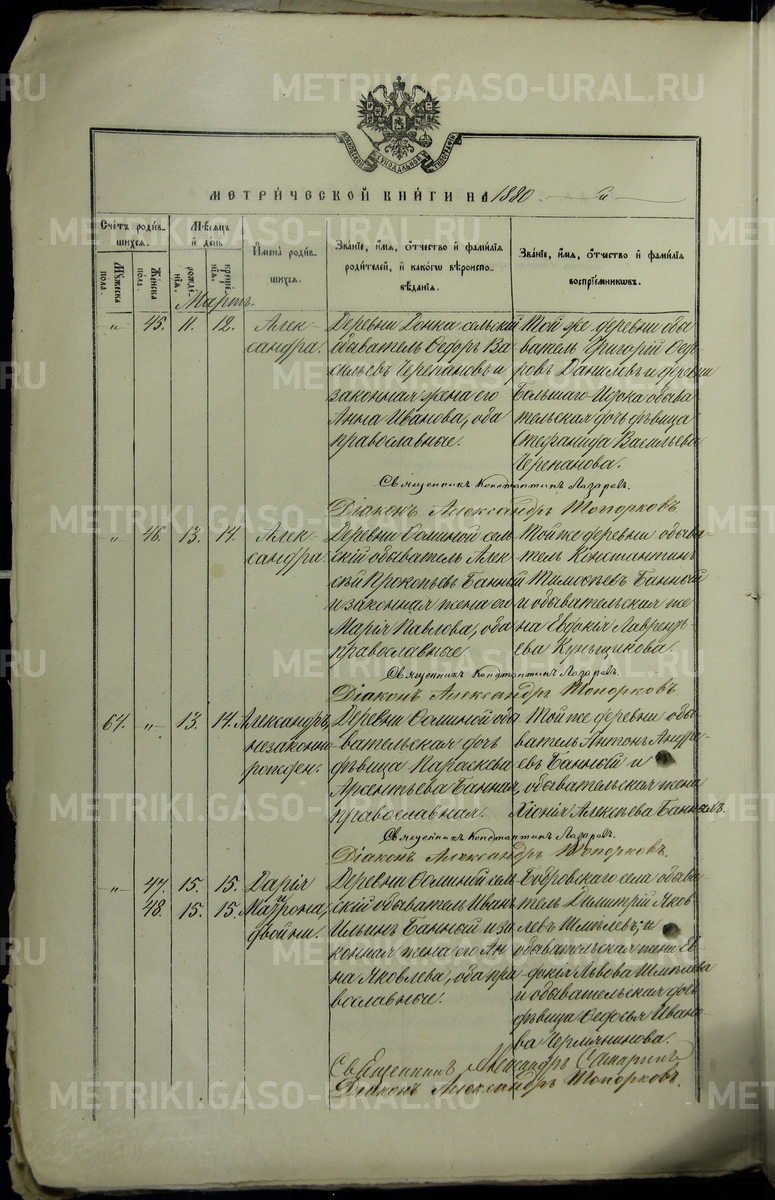 МЕТРИ́ЧЕСКОЙ КНИ́ГИ НА 1880
Сче́тъ роди́в-
шихся.
Мѣ́сяцъ
и҆ день.
И҆мена̀ роди́в-
шихся.
Зва́нїе, и҆́мѧ, ѻ҆́тчество и҆ фами́лїѧ
роди́телей, и҆ како́гѡ вѣроиспо-
вѣ́данїѧ.
Зва́нїе, и҆́мѧ, ѻ҆́тчество и҆ фами́лїѧ
воспрїе́мникѡвъ.
Мꙋжеска
пола.
Же́нска
пола.
рожде́-
нїѧ.
креще́-
нїѧ.
Мартъ.
„ 45. 11. 12. Алек-
сандра.
Деревни Донка сельскій
обыватель Ѳедоръ Ва-
сильевъ Черепановъ и
законная жена его
Анна Иванова, оба
православные.
Той же деревни обы-
ватель Григорій Ѳедо-
ровъ Даниловъ и деревни
Большаго Истока обыва-
тельская дочь дѣвица
Стефанида Васильева
Черепанова.
Священникъ Константинъ Лазаревъ.
Діаконъ Александръ Топорковъ.
„ 46. 13. 14. Алек-
сандра.
Деревни Фоминой сель-
скій обыватель Алек-
сѣй Прокопьевъ Банный
и законная жена его
Марія Павлова, оба
православные.
Той же деревни обыва-
тель Константинъ
Тимоѳеевъ Банный
и обывательская же-
на Евдокія Лаврентъ-
ева Кунгщикова.
Священникъ Константинъ Лазаревъ.
Діаконъ Александръ Топорковъ.
64. „ 13. 14. Александръ,
незаконно-
рожден.
Деревни Фоминой обы-
вательская дочь
дѣвица Параскева
Арсентьева Банная,
православная.
Той же деревни обы-
ватель Антонъ Андре-
евъ Банный и
обывательская жена
Хіонія Алексѣева Банныхъ.
Священникъ Константинъ Лазаревъ.
Діаконъ Александръ Топорковъ.
„ 47. 15. 15. Дарія
48. 15. 15. и Матрона,
двойни.
Деревни Фоминой сель-
скій обыватель Иванъ
Ильинъ Банный и за-
конная жена его Ан-
на Яковлева, оба пра-
вославные.
Бобровскаго села обыва-
тель Димитрій Яков-
левъ Шмелевъ; и
обывательская жена Ев-
докія Львова Шмелева
и обывательская дочь
дѣвица Ѳедосья Ивано-
ва Чермянинова.
Священникъ Александръ
Діаконъ Александръ Топорковъ.
METRIKI.GASO-URAL.RU